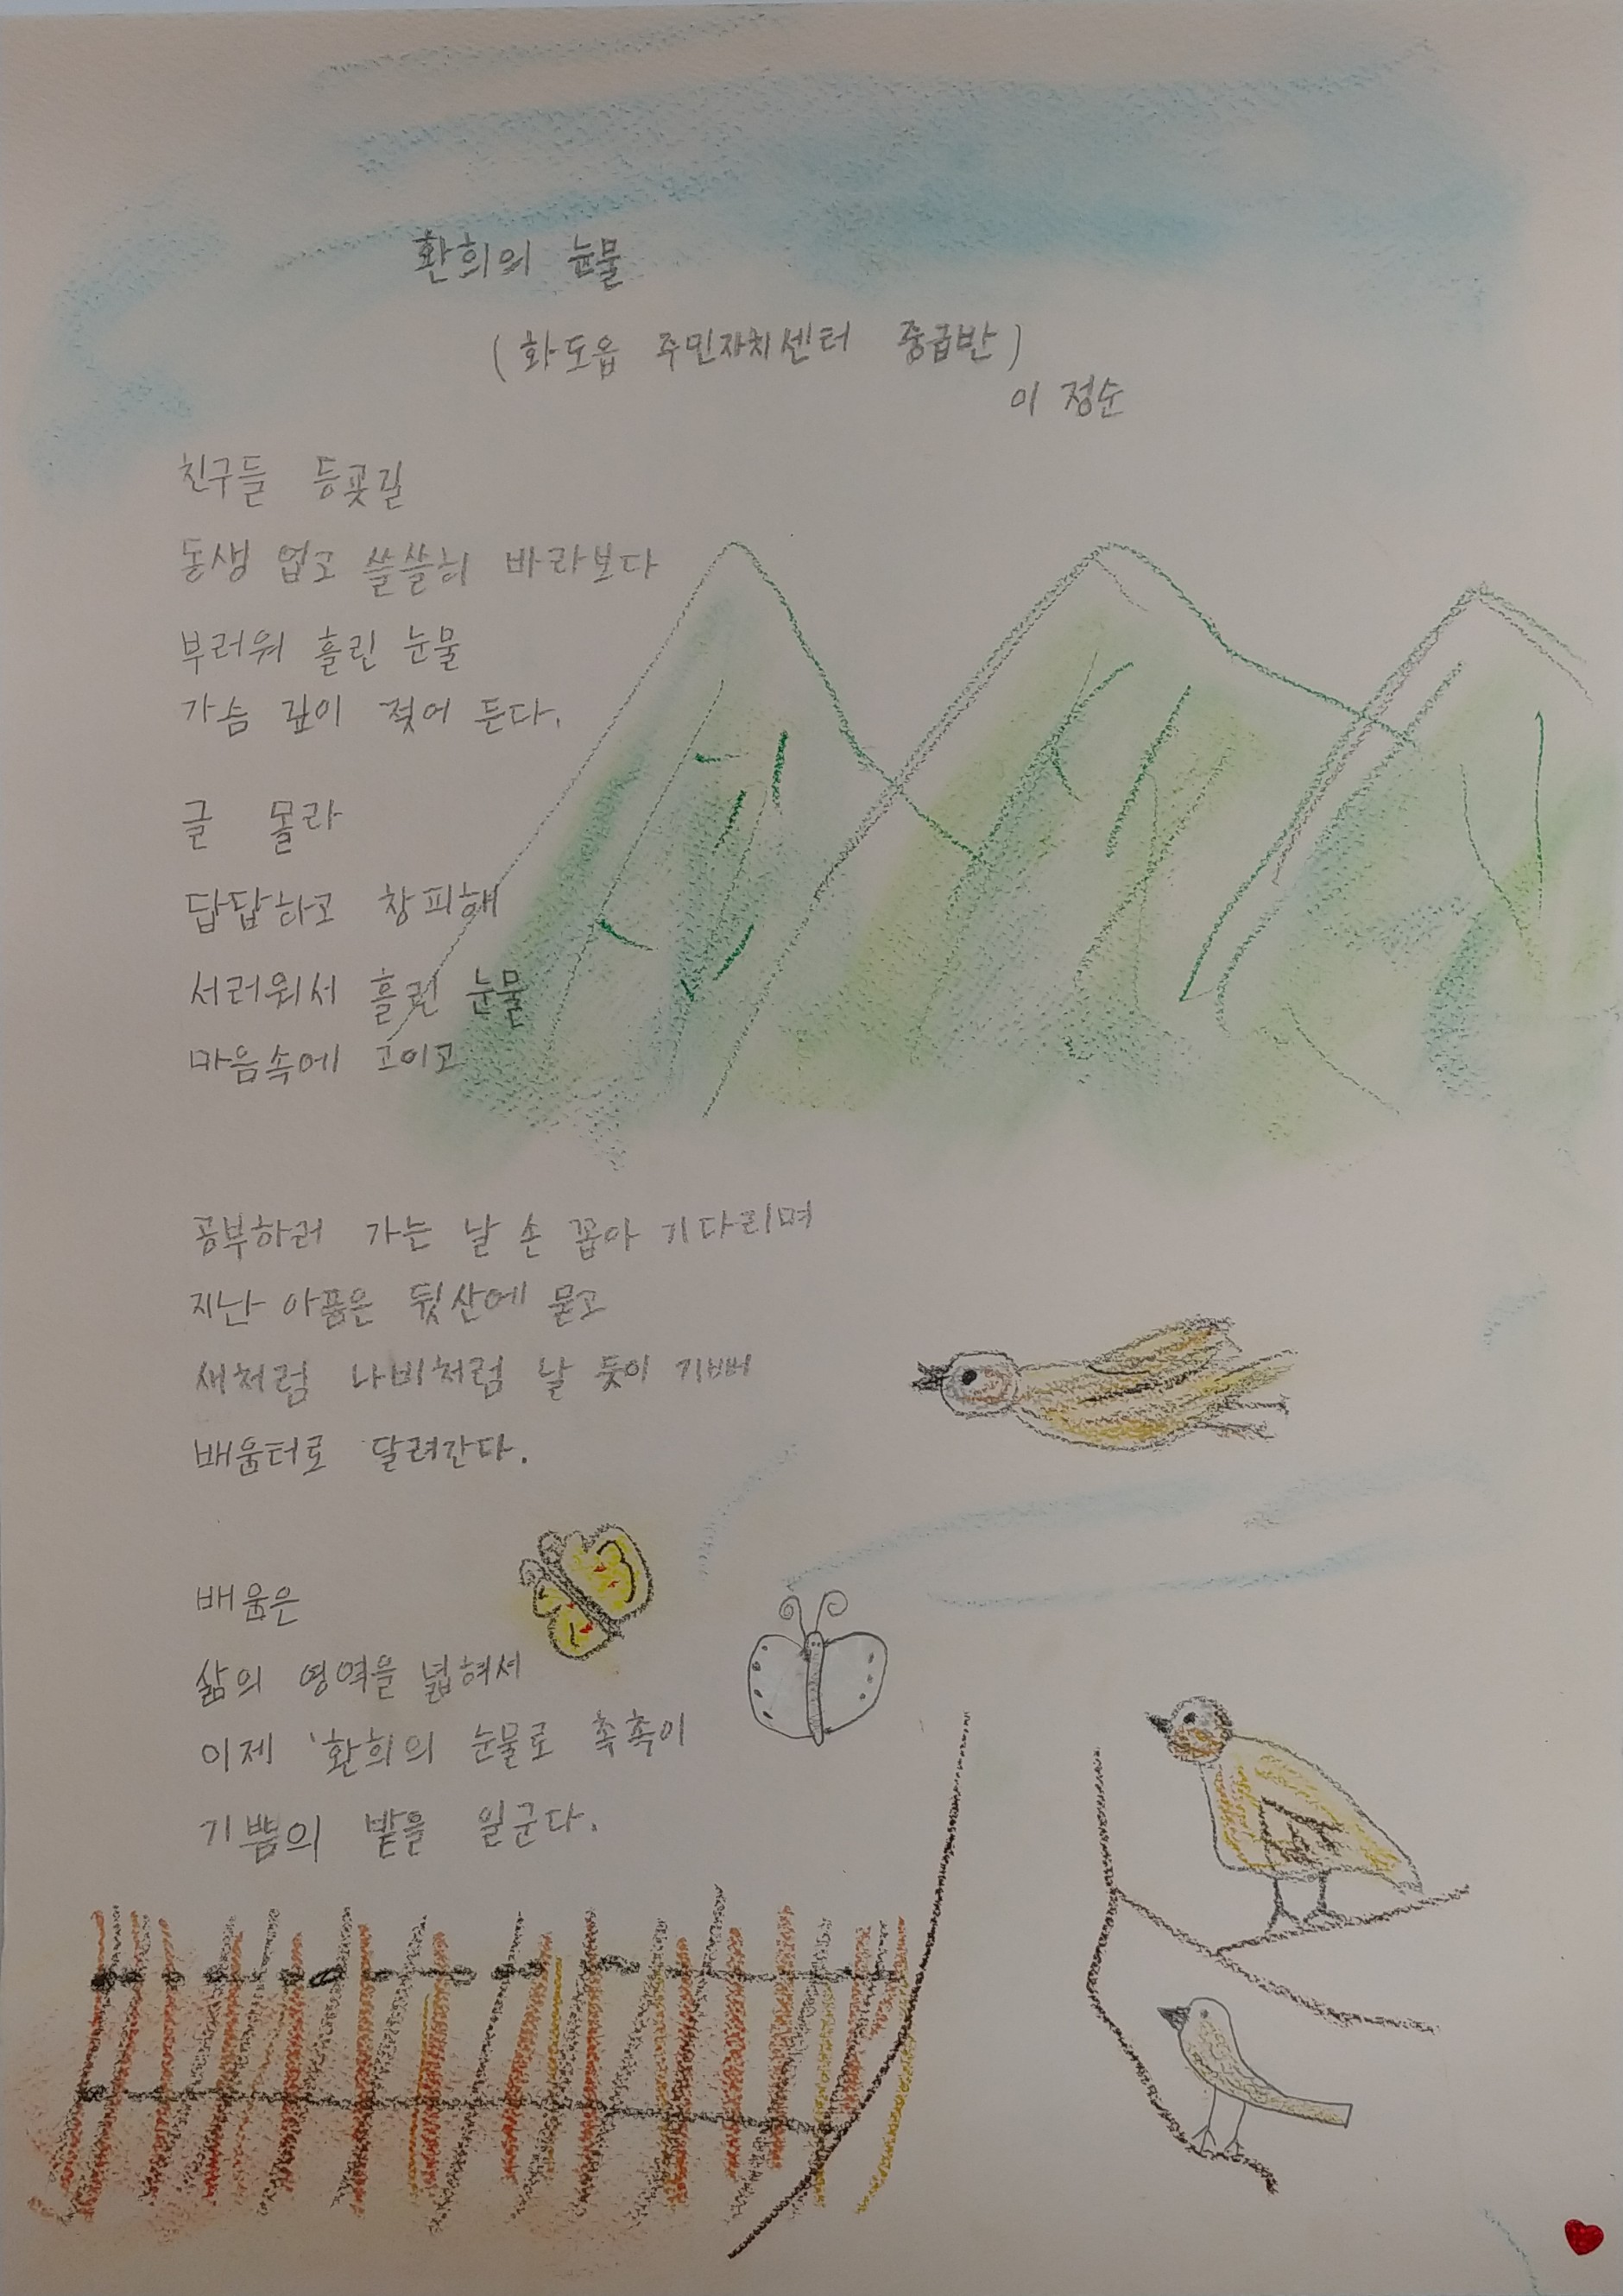 환희의 눈물
(화도읍 주민자치센터 중급반)
이 정순
친구들 등굣길
동생 업고 쓸쓸히 바라보다
부러워 흘린 눈물
가슴 깊이 젖어 든다.
글 몰라
답답하고 창피해
서러워서 흘린 눈물
마음속에 고이고
공부하러 가는 날 손 꼽아 기다리며
지난 아픔은 뒷산에 묻고
새처럼 나비처럼 날 듯이 기뻐
배움터로 달려간다.
배움은
삶의 영역을 넓혀서
이제 '환희의 눈물로 촉촉이
기쁨의 밭을 일군다.